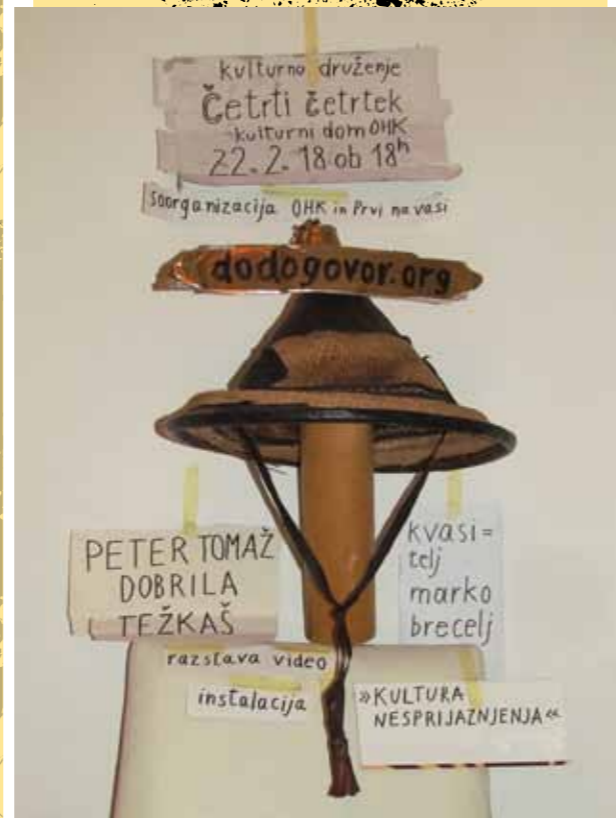 kulturno druženje
Četrti četrtek
kulturni dom OHK
22. 2. 18 ob 18h
soorganizacija OHK in Prvi na vasi
dodogovor.org
PETER TOMAŽ
DOBRILA
TEŽKAŠ
kvasi=
telj
marko
brecelj
razstava video
instalacija
»KULTURA
NESPRIJAZNJENJA«